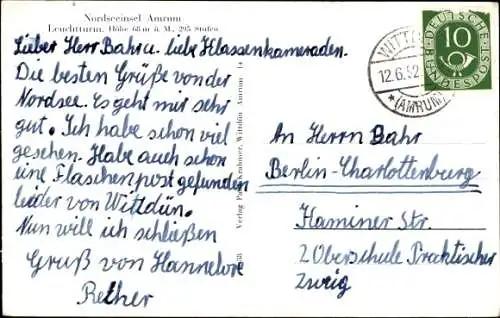 Nordseeinsel Amrum
Leuchtturm. Höhe 68 m ü. M., 295 Stufen
Lieber Herr Bahr u. liebe Klassenkameraden.
Die besten Grüße von der
Nordsee. Es geht mir sehr
gut. Ich habe schon viel
gesehen. Habe auch schon
eine Flaschenpost gefunden
leider von Wittdün.
Nun will ich schließen
Gruß von Hannelore
Rether
Verlag Paul Krahmer, Wittdün Amrum 14
WITTDÜN
12.6.52
*(AMRUM)
DEUTSCHE
BUNDESPOST
10
An Herrn Bahr
Berlin-Charlottenburg
Kaminer Str.
2 Oberschule Praktischer
Zweig